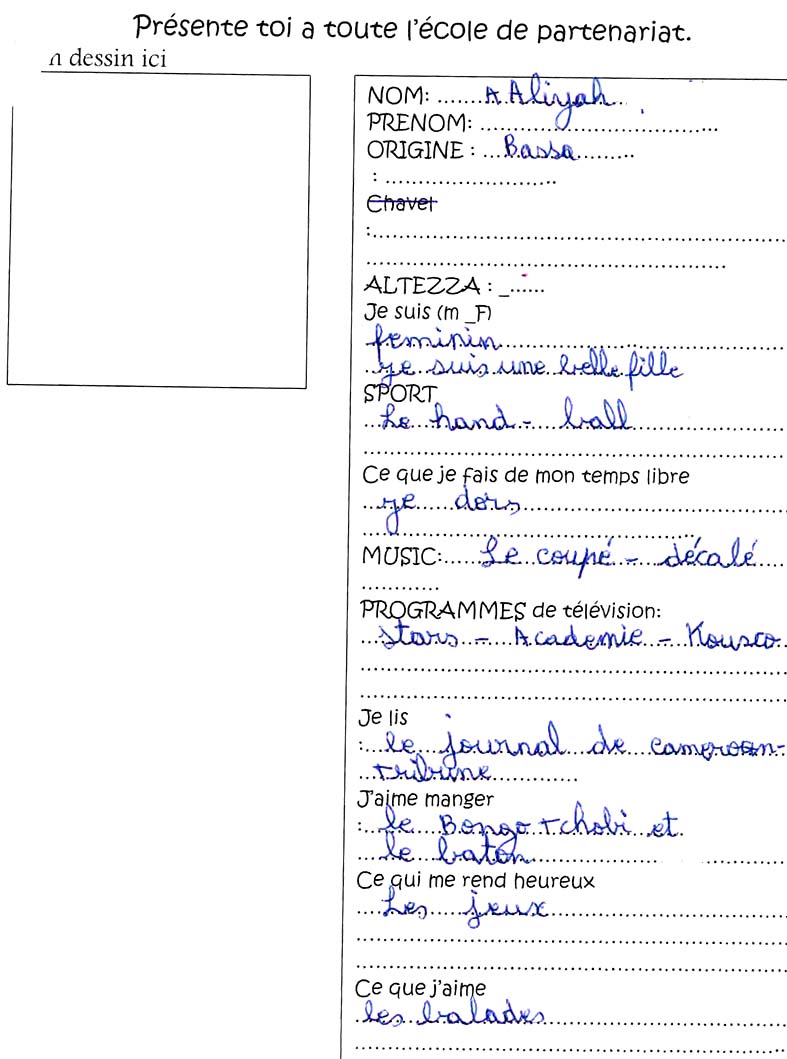 Présente toi a toute l'école de partenariat.
n dessin ici
NOM: ......A Aliyah..
PRENOM: ..................................
ORIGINE : ...Bassa........
: .........................
Chavel
:.....................................................
..............................................
ALTEZZA : _......
Je suis (m _F)
feminin
je suis une belle fille
SPORT
Le hand - ball
Ce que je fais de mon temps libre
je dors
MUSIC:.....Le coupé - décalé
PROGRAMMES de télévision:
stars - Academie - Kousco
Je lis
: le journal de cameroon-
tribune
J'aime manger
: le Bongo Tchobi et
le baton
Ce qui me rend heureux
Les jeux
Ce que j'aime
les balades